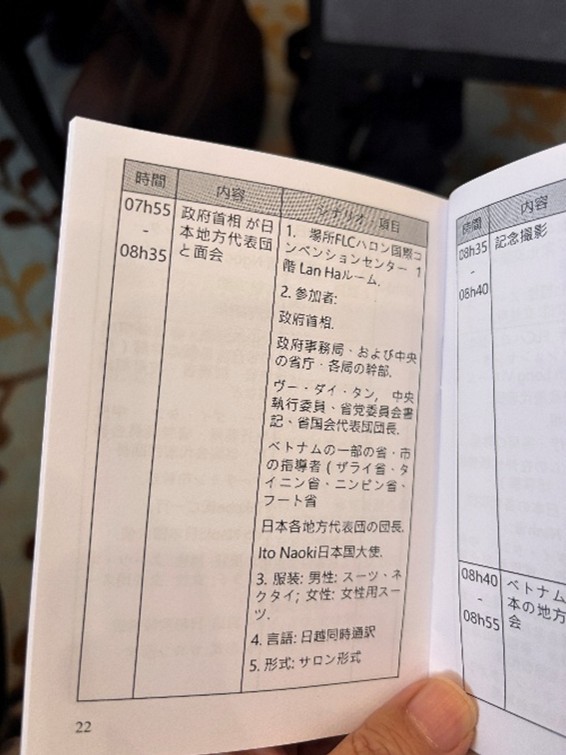 時間
内容
シナリオ・項目
07h55
-
08h35
政府首相 が日
本地方代表団
と面会
1. 場所FLCハロン国際コ
ンベンションセンター 1
階 Lan Haルーム.
2. 参加者:
政府首相.
政府事務局・および中央
の省庁・各局の幹部.
ヴー・ダイ・タン, 中央
執行委員、省党委員会書
記、省国会代表団団長.
ベトナムの一部の省・市
の指導者 ( ザライ省・タ
イニン省・ニンビン省・
フート省
日本各地方代表団の団長.
Ito Naoki日本国大使.
3. 服装: 男性: スーツ・ネ
クタイ; 女性: 女性用スー
ツ.
4. 言語: 日越同時通訳
5. 形式: サロン形式
22
時間
内容
08h35
-
08h40
記念撮影
08h40
-
08h55
ベトナム
本の地方
会